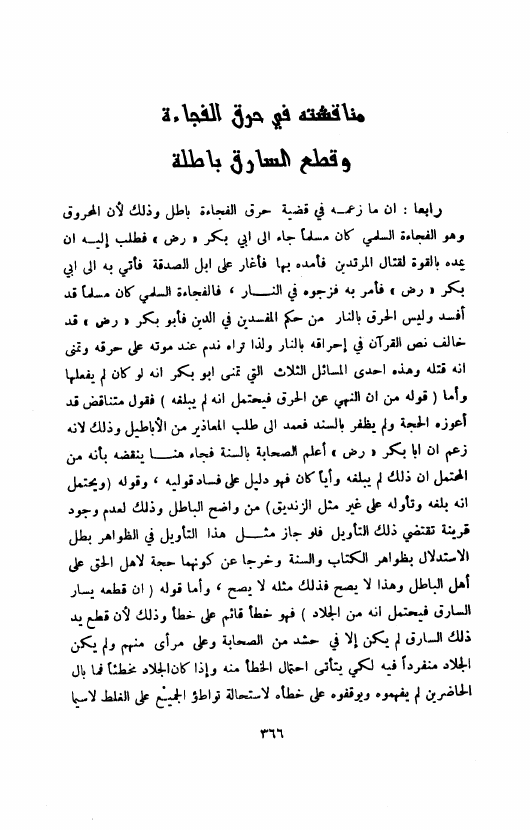 مناقشته في حرق الفجاءة
وقطع السارق باطلة
رابعا : ان ما زعمـه في قضية حرق الفجاءة باطل وذلك لأن المحروق
وهو الفجاءة السلمي كان مسلماً جاء الى ابي بكر « رض » فطلب إليـه ان
يمده بالقوة لقتال المرتدين فأمده بها فأغار على ابل الصدقة فأتي به الى ابي
بكر « رض » فأمر به فزجوه في النـار ، فالفجاءة السلمي كان مسلماً قد
أفسد وليس الحرق بالنار من حكم المفسدين في الدين فأبو بكر « رض » قد
خالف نص القرآن في إحراقه بالنار ولذا تراه ندم عند موته على حرقه وتمنى
انه قتله وهذه احدى المسائل الثلاث التي تمنى ابو بكر انه لو كان لم يفعلها
وأما ( قوله من ان النهي عن الحرق فيحتمل انه لم يبلغه ) فقول متناقض قد
أعوزه الحجة ولم يظفر بالسند فعمد الى طلب المعاذير من الأباطيل وذلك لانه
زعم ان ابا بكر « رض » أعلم الصحابة بالسنة فجاء هنـا ينقضه بأنه من
المحتمل ان ذلك لم يبلغه وأياً كان فهو دليل على فساد قوليه ، وقوله (ويحتمل
انه بلغه وتأوله على غير مثل الزنديق) من واضح الباطل وذلك لعدم وجود
قرينة تقتضي ذلك التأويل فلو جاز مثـل هذا التأويل في الظواهر بطل
الاستدلال بظواهر الكتاب والسنة وخرجا عن كونهما حجة لاهل الحق على
أهل الباطل وهذا لا يصح فذلك مثله لا يصح ، وأما قوله ( ان قطعه يسار
السارق فيحتمل انه من الجلاد ) فهو خطأ قائم على خطأ وذلك لأن قطع يد
ذلك السارق لم يكن إلا في حشد من الصحابة وعلى مرأى منهم ولم يكن
الجلاد منفرداً فيه لكي يتأتى احتمال الخطأ منه وإذا كان الجلاد مخطئاً فما بال
الحاضرين لم يفهموه ويوقفوه على خطأه لاستحالة تواطؤ الجميع على الغلط لاسيما
٣٦٦